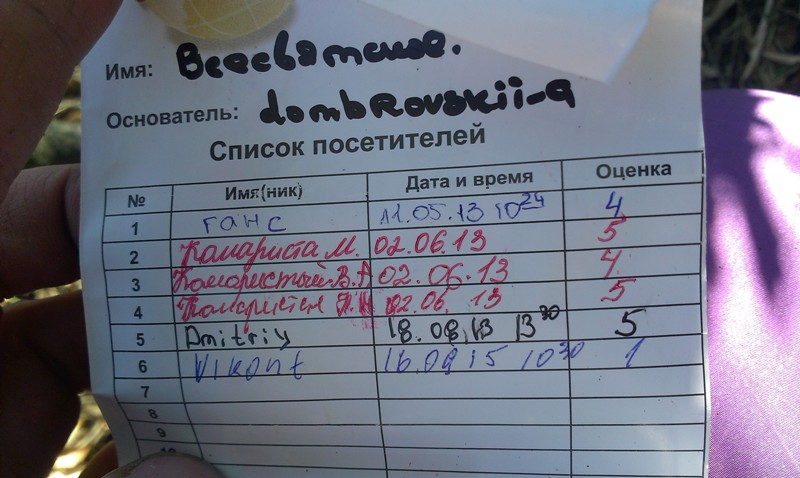 Имя: Всесвятское.
Основатель: dombrovskii-a
Список посетителей
№ Имя(ник) Дата и время Оценка
1 ганс 11.05.13 10 24 4
2 Комариста М. 02.06.13 5
3 Комаристый В. 02.06.13 4
4 02.06. 13 5
5 Dmitriy 18.08.13 13 30 5
6 Vikont 16.09 15 10 30 1
7
8
9
10